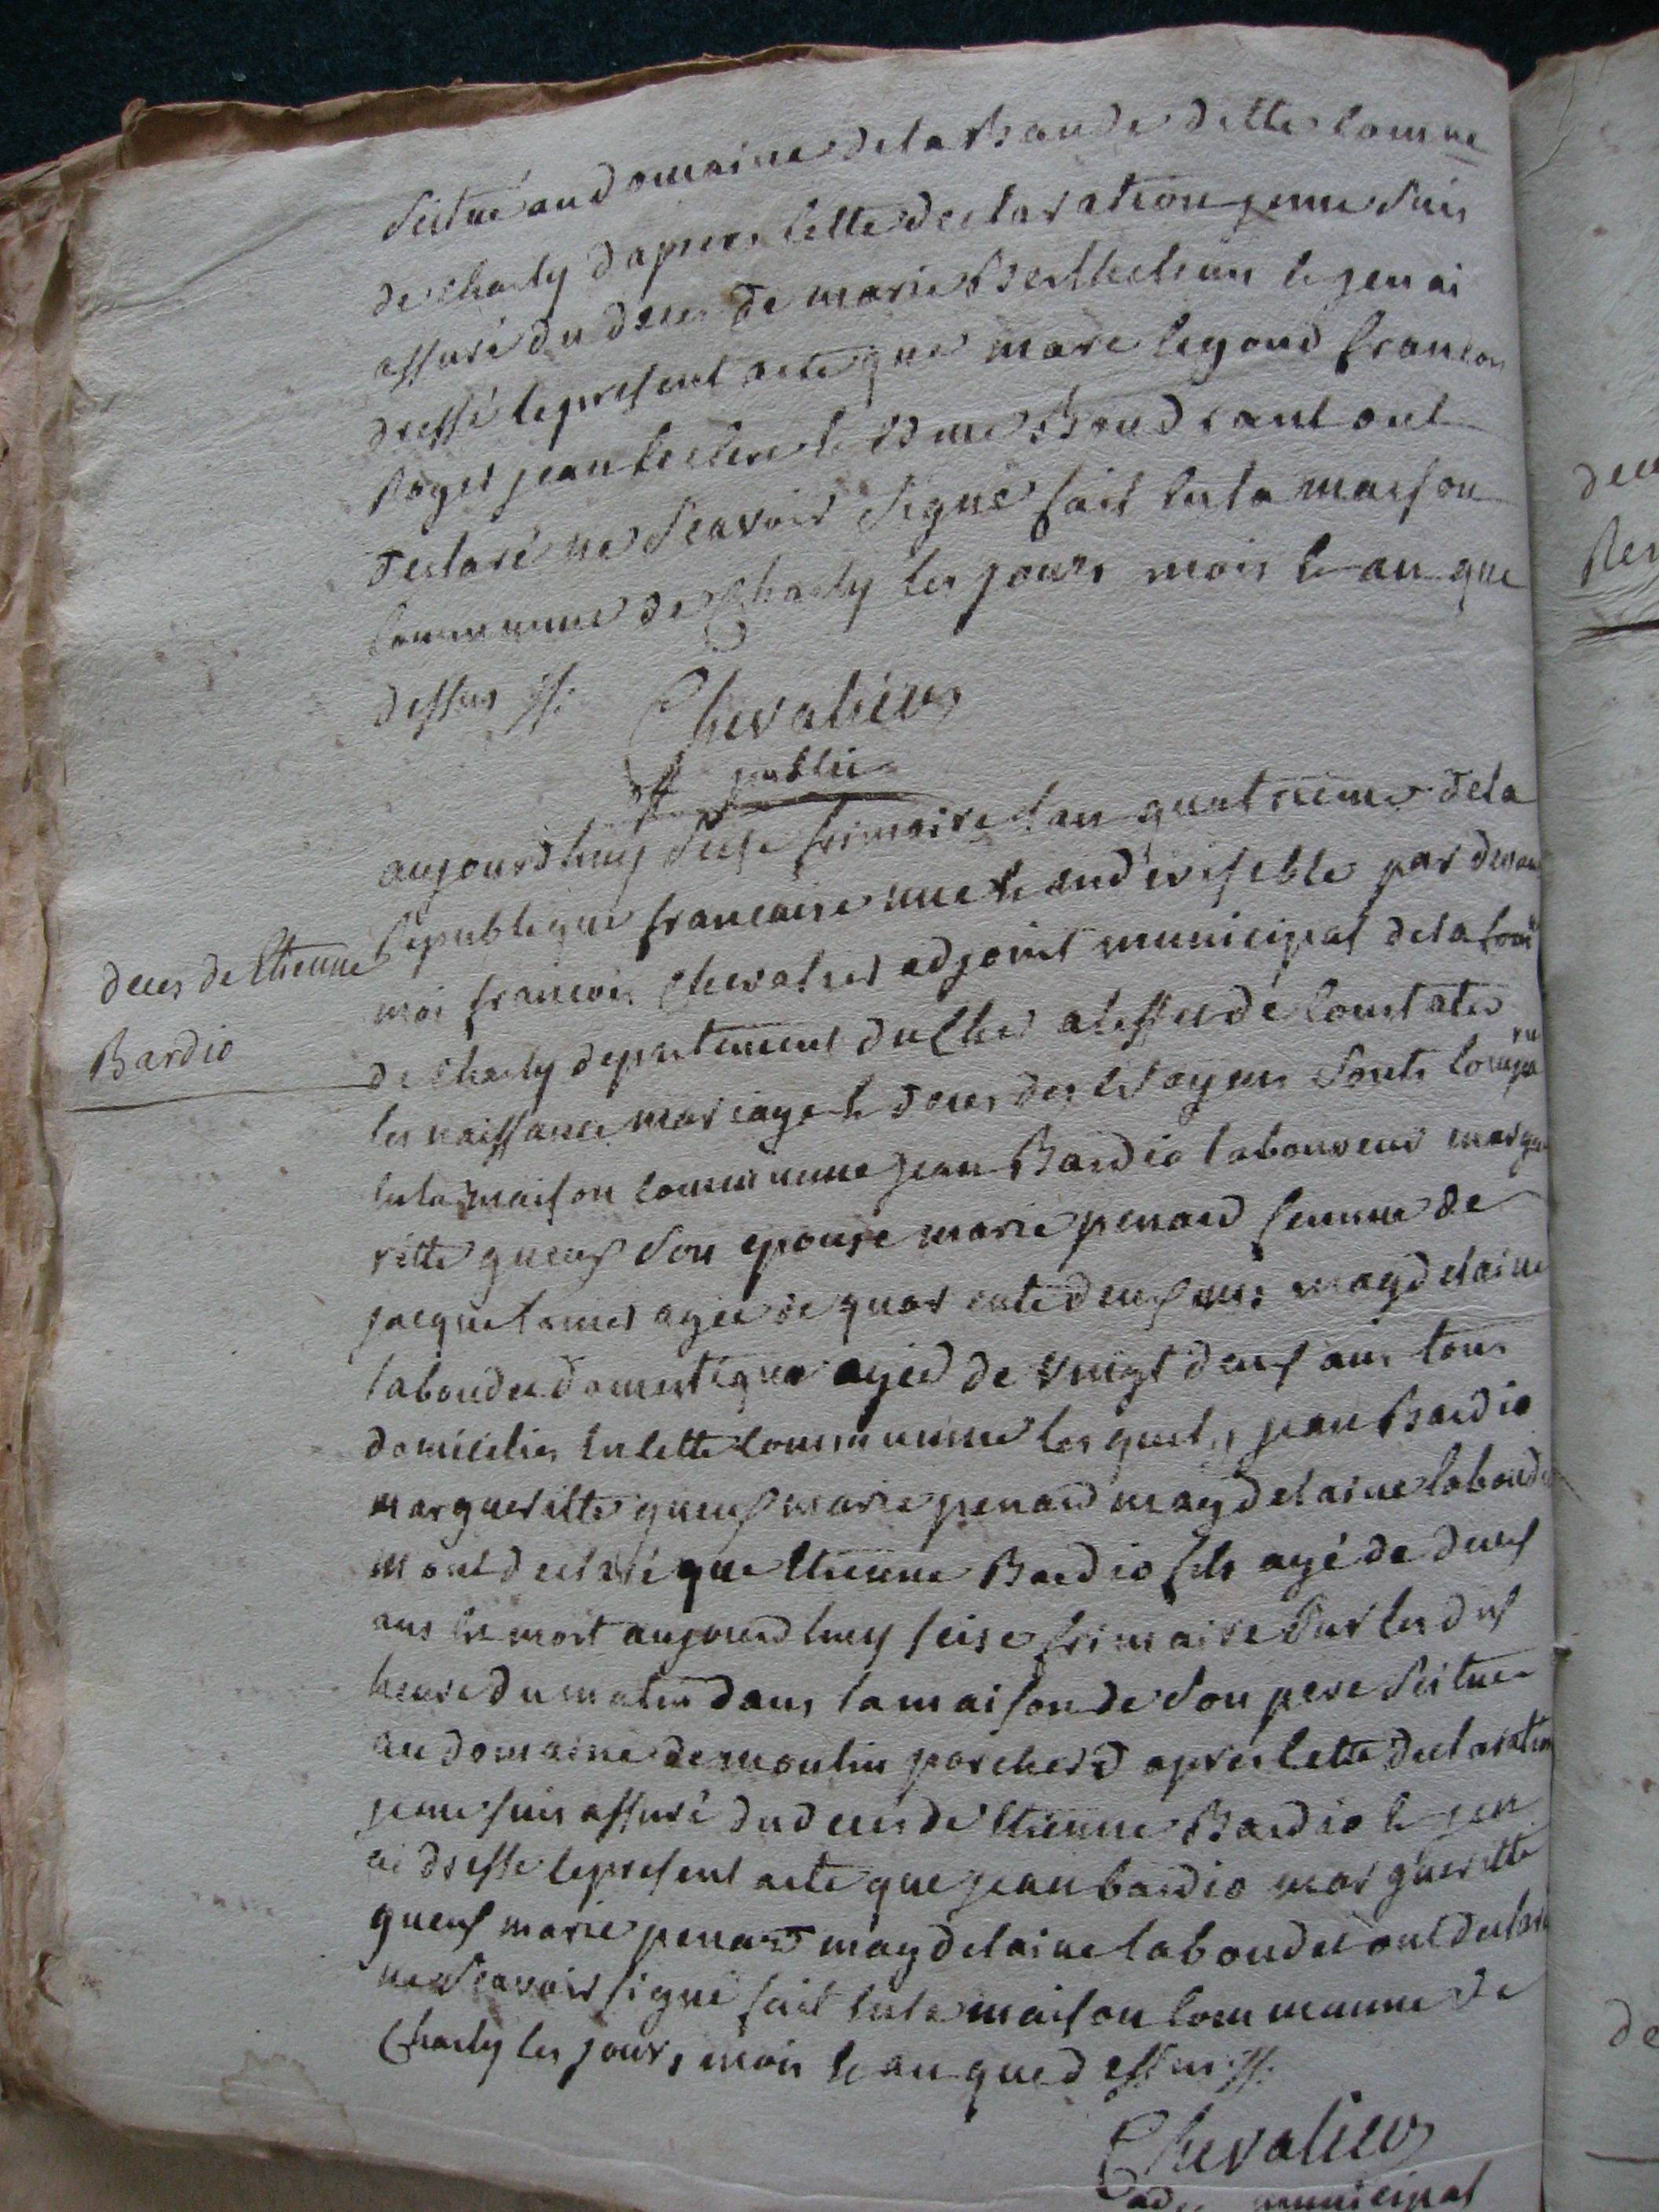 scitué au domaine de la Baude ditte comne
de Charly dapres cette declaration je me suis
assuré du deces de marie Berthelium et jen ai
dressé le present acte que marie legond francois
roger jean leclere et Edme Boudeant ont
declaré ne scavoir signé fait en la maison
commune de Charly les jours mois et an que
dessus
Chevalier
public
aujourdhuy seise frimaire lan quatrieme de la
republique francaise une et andivisible par devant
moi francois Chevalier adjoint municipal de la com
de Charly departement du Cher a leffet dé constater
deces de Etienne
Bardio
les naissance mariage et deces des citoyens sonts compa
ru
en la maison commune jean Bardio laboureur margue
ritte gueuf son epouse marie penard femme de
jacque agee de quarente deuf ans magdelaine
laboudet domestique ageé de vingt deuf ans tous
domicilies en cette commune les quels jean Bardio
margueritte gueuf marie penard magdelaine laboudet
mont declaré que Etienne Bardio fils agé de deuf
ans est mort aujourdhuy seise frimaire sur les deuf
heure du matin dans la maison de son pere scitue
au domaine de moulin porcher d apres cette declaration
je me suis assuré du deces de Etienne Bardio et jen
ai dresse le present acte que jean bardio margueritte
gueuf marie penard magdelaine laboudet ont declaré
ne scavoir signé fait en la maison commune de
Charly les jours mois et an que dessus
Chevalier
adj municipal